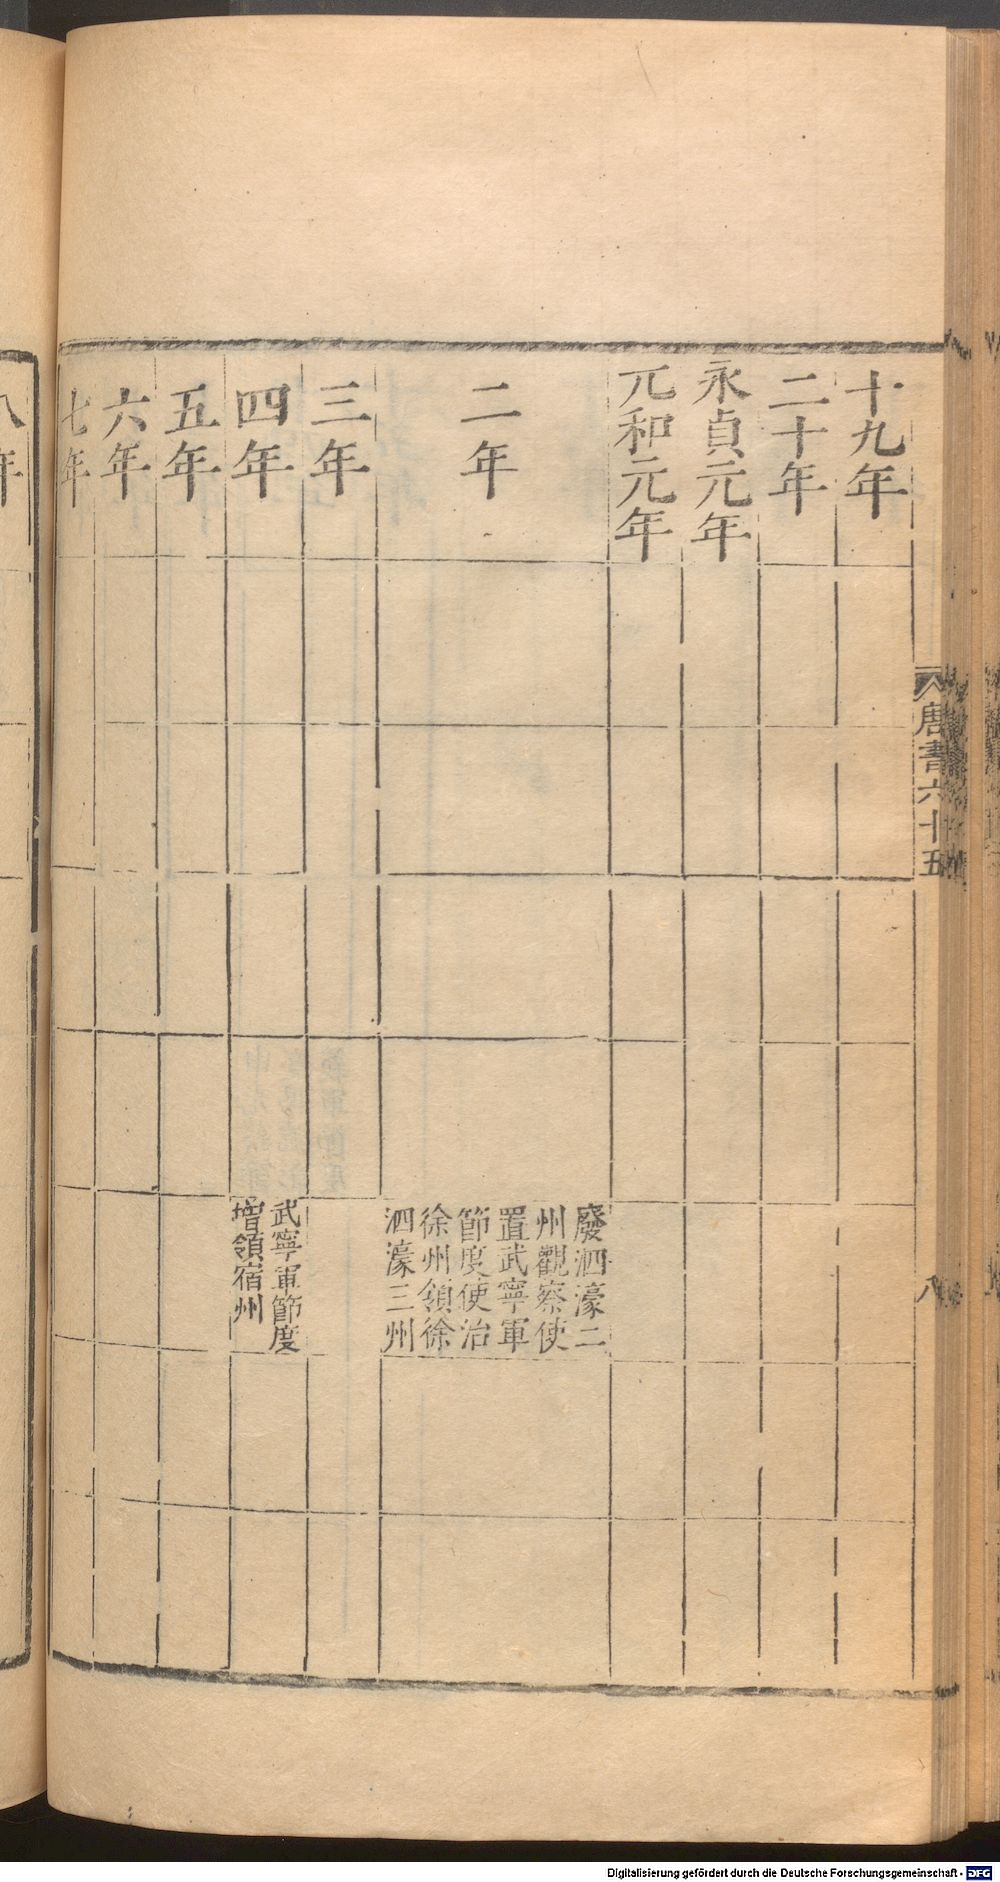 唐書六十五
八
十九年
二十年
永貞元年
元和元年
二年
廢泗濠二
州觀察使
置武寧軍
節度使治
徐州領徐
泗濠三州
三年
四年
武寧軍節度
增領宿州
五年
六年
七年
八年
Digitalisierung gefördert durch die Deutsche Forschungsgemeinschaft - DFG